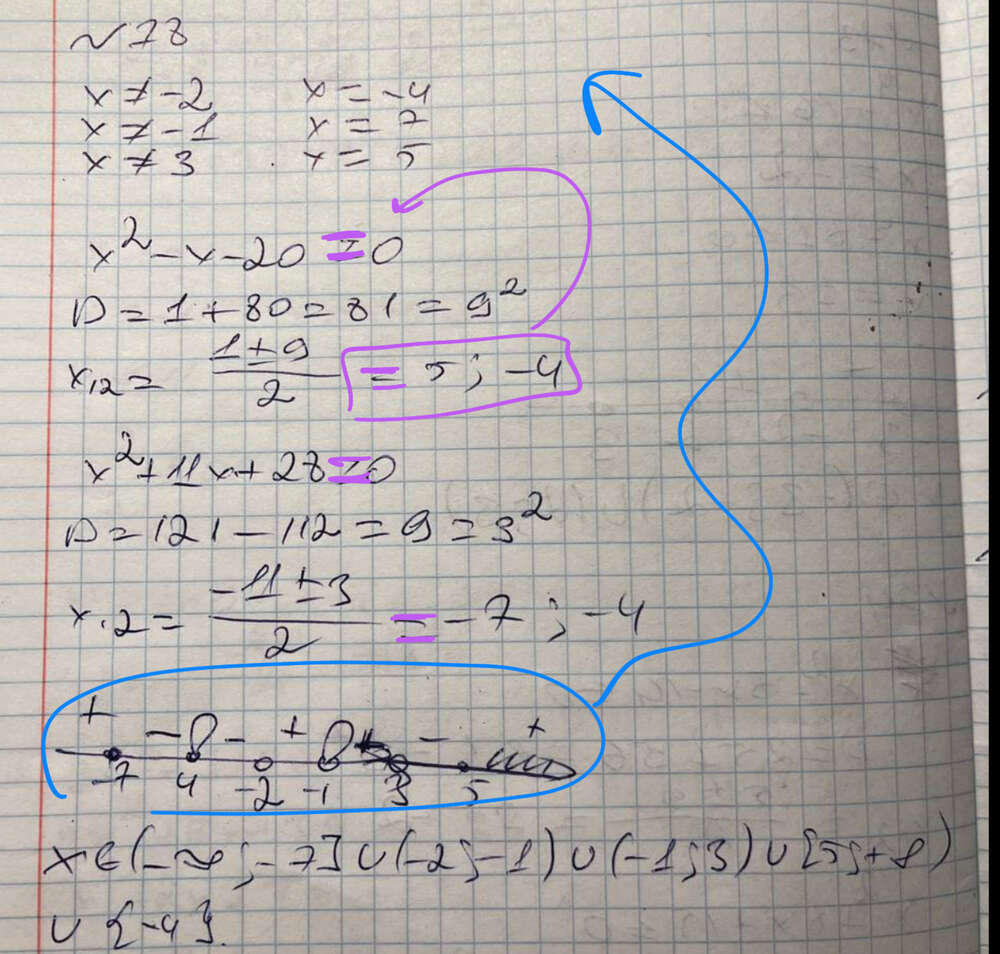 ~78
x ≠ -2 x = -4
x ≠ -1 x = 7
x ≠ 3 x = 5
x² - x - 20 = 0
D = 1 + 80 = 81 = 9²
x₁₂ = (1 ± 9)/2 = 5 ; -4
x² + 11x + 28 = 0
D = 121 - 112 = 9 = 3²
x.₂ = (-11 ± 3)/2 = -7 ; -4
+ - - + - +
-7 4 -2 -1 3 5
x ∈ (-∞ ; -7] ∪ (-2 ; -1) ∪ (-1 ; 3) ∪ [5 ; +∞)
∪ {-4}.